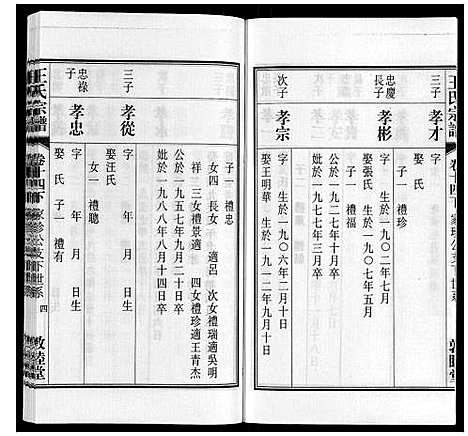 王氏宗譜
卷十四下
敦睦堂
孝才
字
子一 禮珍
忠慶
長子
孝彬
字 生於一九〇二年七月
娶張氏 生於一九〇七年五月
子一 禮福
公於一九七三年三月卒
妣於一九七七年三月卒
次子
孝宗
字 生於一九〇六年二月十日
娶王明華 生於一九一二年九月十日
子一 禮忠
女四 長女 適呂 次女禮瑞適吳明
祥 三女禮景適 四女禮珍適王青杰
公於一九五七年九月二十日卒
妣於一九八八年八月十四日卒
三子
孝從
字 年 月 日生
娶汪氏
女一 禮聰
忠祿
子
孝忠
字 年 月 日生
娶 氏 子一 禮有
王氏宗譜
卷十四下
家珍公支下世系
四
敦睦堂